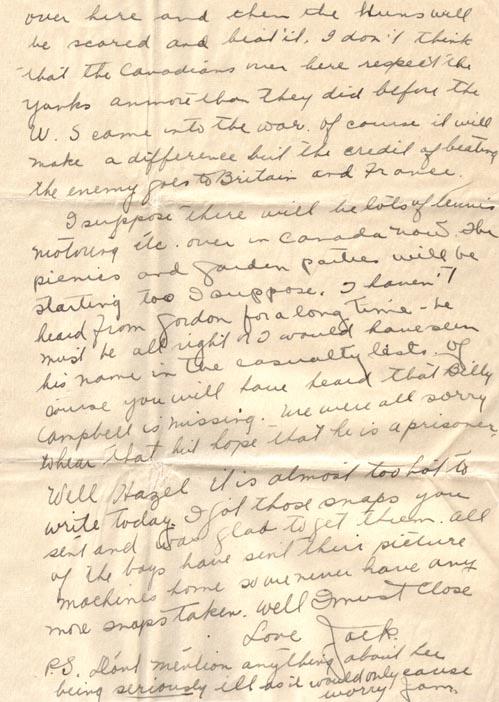 over here and then the Huns will
be scared and beat it. I don't think
that the Canadians over here respect the
Yanks anmore than they did before the
U. S came into the war. Of course it will
make a difference but the credit of beating
the enemy goes to Britain and France.
I suppose there will be lots of tennis
motoring etc. over in Canada now. The
picnics and garden parties will be
starting too I suppose. I haven't
heard from Gordon for a long time - he
must be all right or I would have seen
his name in the casualty lists. Of
course you will have heard that Billy
Campbell is missing. We were all sorry
to hear that but hope that he is a prisoner
Well Hazel it is almost too hot to
write today. I got those snaps you
sent and was glad to get them. All
of the boys have sent their picture
machines home so we never have any
more snaps taken. Well I must close
Love Jack.
P.S. Don't mention anything about
being seriously ill as it would only cause
worry